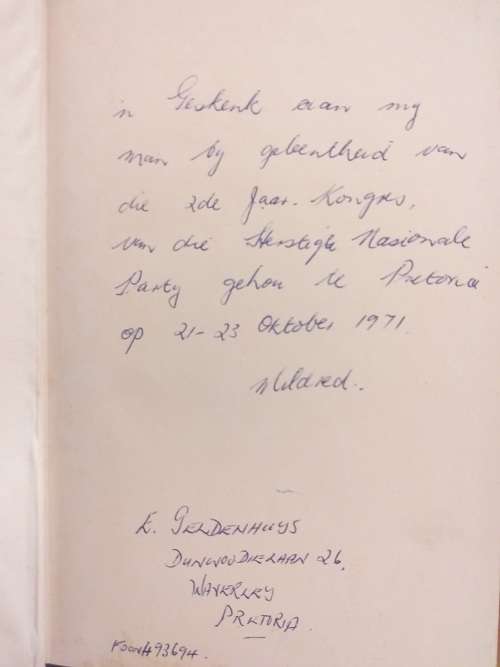 'n Geskenk aan my
man by geleentheid van
die 2de Jaar. Kongres,
van die Herstigte Nasionale
Party gehou te Pretoria
op 21-23 Oktober 1971.
Mildred.
E. GELDENHUYS
DUNWOODIELAAN 26,
WAVERLEY
PRETORIA.
FOON 493694.